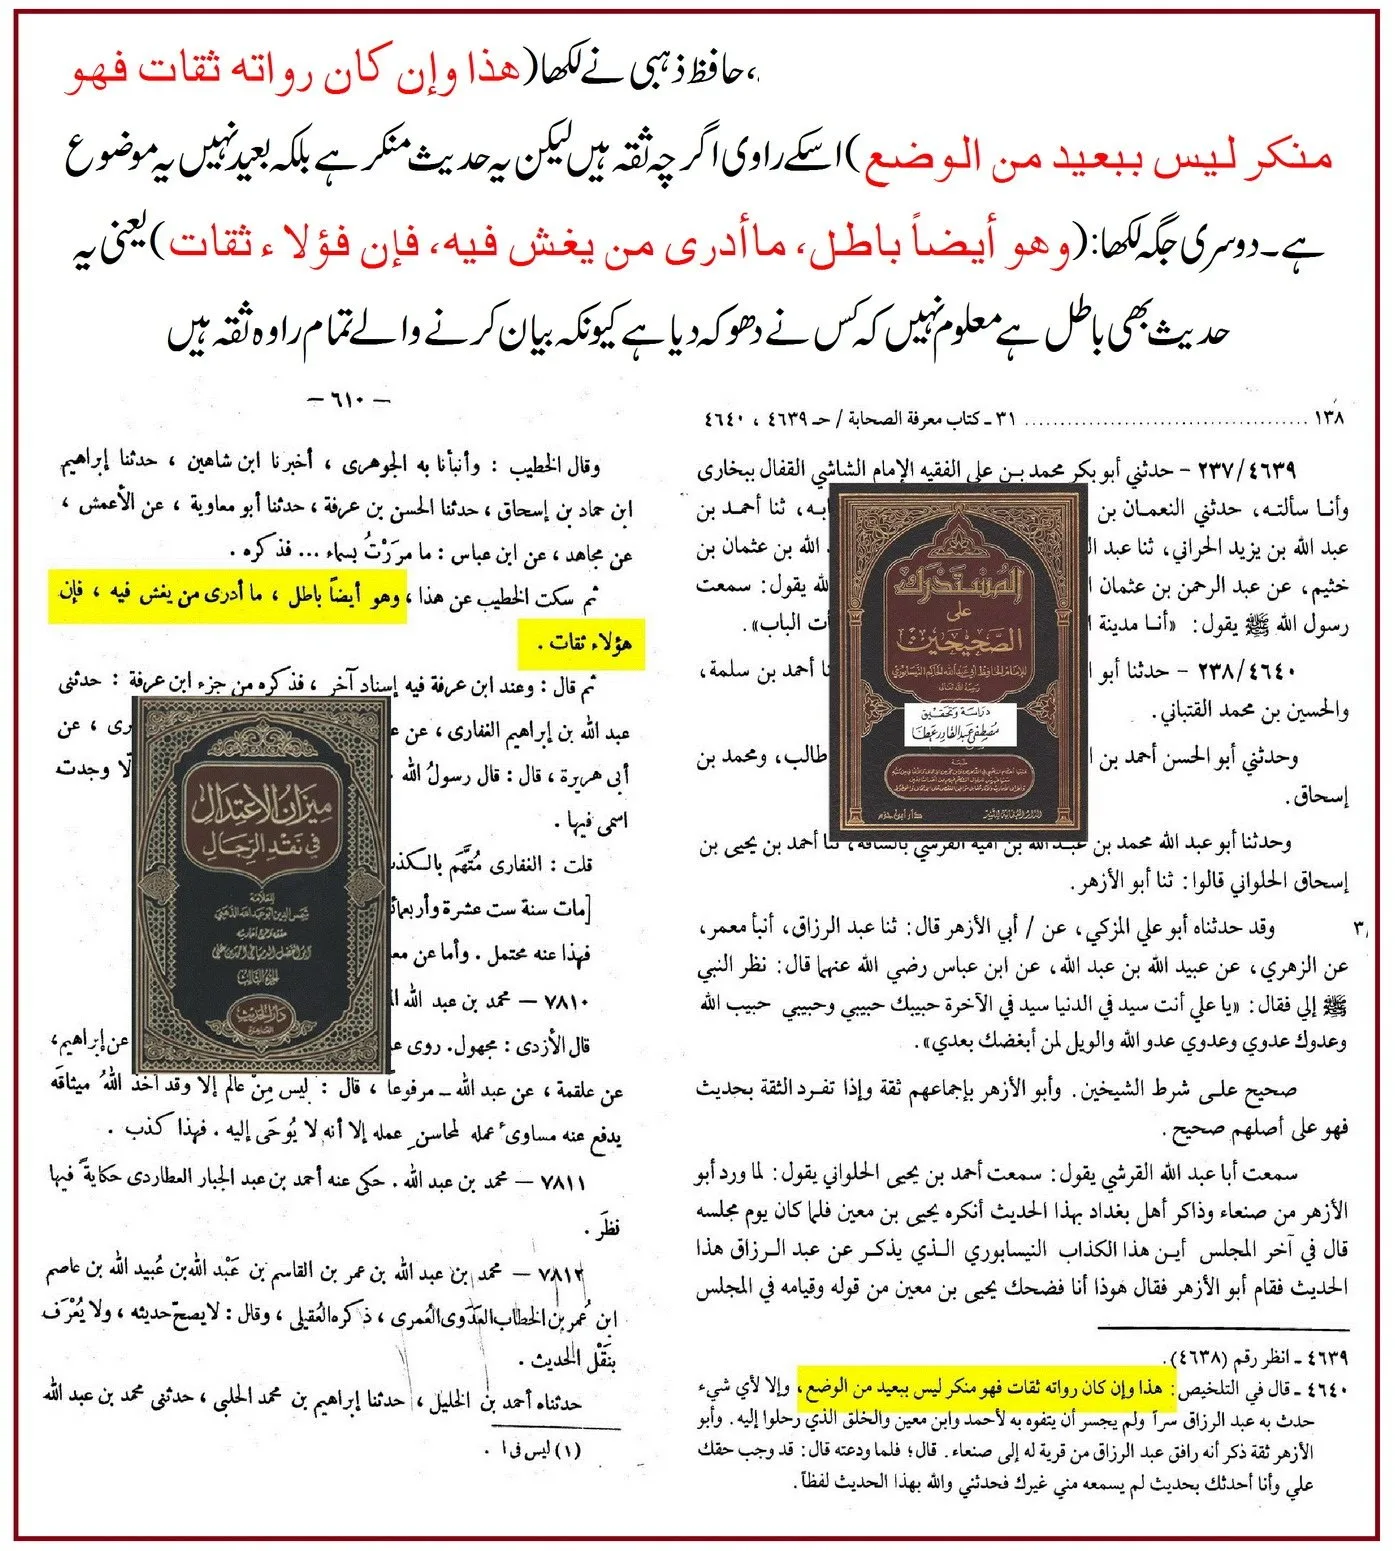 ،حافظ ذہبی نے لکھا(هذا وإن كان رواته ثقات فهو
منكر ليس ببعيد من الوضع)اسکے راوی اگرچہ ثقہ ہیں لیکن یہ حدیث منکر ہے بلکہ بعید نہیں یہ موضوع
ہے۔دوسری جگہ لکھا:(وهو أيضاً باطل، ماأدرى من يغش فيه، فإن فؤلاء ثقات)یعنی یہ
حدیث بھی باطل ہے معلوم نہیں کہ کس نے دھوکہ دیا ہے کیونکہ بیان کرنے والے تمام راوہ ثقہ ہیں
١٣٨ ........ ٣١ ـ كتاب معرفة الصحابة / حـ ٤٦٣٩ ، ٤٦٤٠
٢٣٧/٤٦٣٩ - حدثني أبو بكر محمد بـن علي الفقيه الإمام الشاشي القفال ببخارى
وأنـا سألتـه، حدثني النعمـان بن به، ثنا أحمـد بن
عبد الله بن يزيد الحراني، ثنا عبد الله بن عثمان بن
خثيم، عن عبد الرحمن بن عثمان يقول: سمعت
رسول الله ﷺ يقول: «أنـا مدينة ت الباب».
٢٣٨/٤٦٤٠ - حدثنا أبو أحمد بن سلمة،
والحسين بن محمد القتباني.
وحدثني أبو الحسن أحمد بن طالب، ومحمد بن
إسحاق.
وحدثنا أبو عبد الله محمد بن عبـد الله بن أمية القرشي بالساقة، ثنا أحمد بن يحيى بن
إسحاق الحلواني قالوا: ثنا أبو الأزهر.
وقد حدثناه أبو علي المزكي، عن / أبي الأزهر قال: ثنا عبد الرزاق، أنبأ معمر، ٣/
عن الزهري، عن عبيد الله بن عبد الله، عن ابن عباس رضي الله عنهما قال: نظر النبي
ﷺ إلي فقال: «يا علي أنت سيد في الدنيا سيد في الآخرة حبيبك حبيبي وحبيبي حبيب الله
وعدوك عدوي وعدوي عدو الله والويل لمن أبغضك بعدي».
صحيح علـى شرط الشيخين. وأبو الأزهر بإجماعهم ثقة وإذا تفـرد الثقة بحديث
فهو على أصلهم صحيح.
سمعت أبا عبد الله القرشي يقول: سمعت أحمد بن يحيى الحلواني يقول: لما ورد أبو
الأزهر من صنعاء وذاكر أهل بغداد بهذا الحديث أنكره يحيى بن معين فلما كان يوم مجلسه
قال في آخر المجلس أيـن هذا الكذاب النيسابوري الـذي يذكـر عن عبد الـرزاق هذا
الحديث فقام أبو الأزهر فقال هوذا أنا فضحك يحيى بن معين من قوله وقيامه في المجلس
٤٦٣٩ ـ انظر رقم (٤٦٣٨).
٤٦٤٠ ـ قال في التلخيص: هذا وإن كان رواته ثقات فهو منكر ليس ببعيد من الوضع، وإلا لأي شيء
حدث به عبد الرزاق سراً ولم يجسر أن يتفوه به لأحمد وابن معين والخلق الذي رحلوا إليه. وأبو
الأزهر ثقة ذكر أنه رافق عبد الرزاق من قرية له إلى صنعاء. قال؛ فلما ودعته قال: قد وجب حقك
علي وأنا أحدثك بحديث لم يسمعه مني غيرك فحدثني والله بهذا الحديث لفظاً.
المستدرك
على
الصحيحين
للإمام الحافظ أبي عبد الله الحاكم النيسابوري
رحمه الله تعالى
دراسة وتحقيق
مصطفى عبد القادر عطا
— ٦١٠ —
وقال الخطيب : وأنبأنا به الجوهرى ، أخبرنا ابن شاهين ، حدثنا إبراهيم
ابن حماد بن إسحاق ، حدثنا الحسن بن عرفة ، حدثنا أبو معاوية ، عن الأعمش ،
عن مجاهد ، عن ابن عباس : ما مررْتُ بسماء ... فذكره .
ثم سكت الخطيب عن هذا ، وهو أيضاً باطل ، ما أدرى من يغش فيه ، فإن
هؤلاء ثقات .
ثم قال : وعند ابن عرفة فيه إسناد آخر ، فذكره من جزء ابن عرفة : حدثنى
عبد الله بن إبراهيم الغفارى ، عن رى ، عن
أبى هريرة ، قال : قال رسولُ الله لّا وجدت
اسمى فيها .
قلت : الغفارى مُتَّهَم بالـكذب
[مات سنة ست عشرة وأربعمائ
فهذا عنه محتمل . وأما عن مع
٧٨١٠ — محمد بن عبد الله
قال الأزدى : مجهول. روى عن إبراهيم،
عن علقمة ، عن عبد الله ــ مرفوعاً ، قال : ليس مِنْ عالم إلا وقد أخذ اللهُ ميثاقَه
يدفع عنه مساوىٔ عمله لمحاسنِ عمله إلا أنه لا يُوحَى إليه . فهذا كذب .
٧٨١١ — محمد بن عبد الله . حكى عنه أحمد بن عبد الجبار العطاردى حكايةً فيها
نظَر .
٧٨١٢ — محمد بن عبد الله بن عمر بن القاسم بن عَبْد الله بن عُبيد الله بن عاصم
ابن عُمر بن الخطاب العَدَوى العُمرى ، ذكره العُقيلى ، وقال : لا يصحّ حديثه ، ولا يُعْرَف
بنَقْل الحديث .
حدثناه أحمد بن الخليل ، حدثنا إبراهيم بن محمد الحلبى ، حدثنى محمد بن عبد الله
(١) ليس فى ا .
ميزان الاعتدال
في نقد الرجال
للعلامة
شمس الدين أبو عبد الله الذهبي
دار الحديث
القاهرة